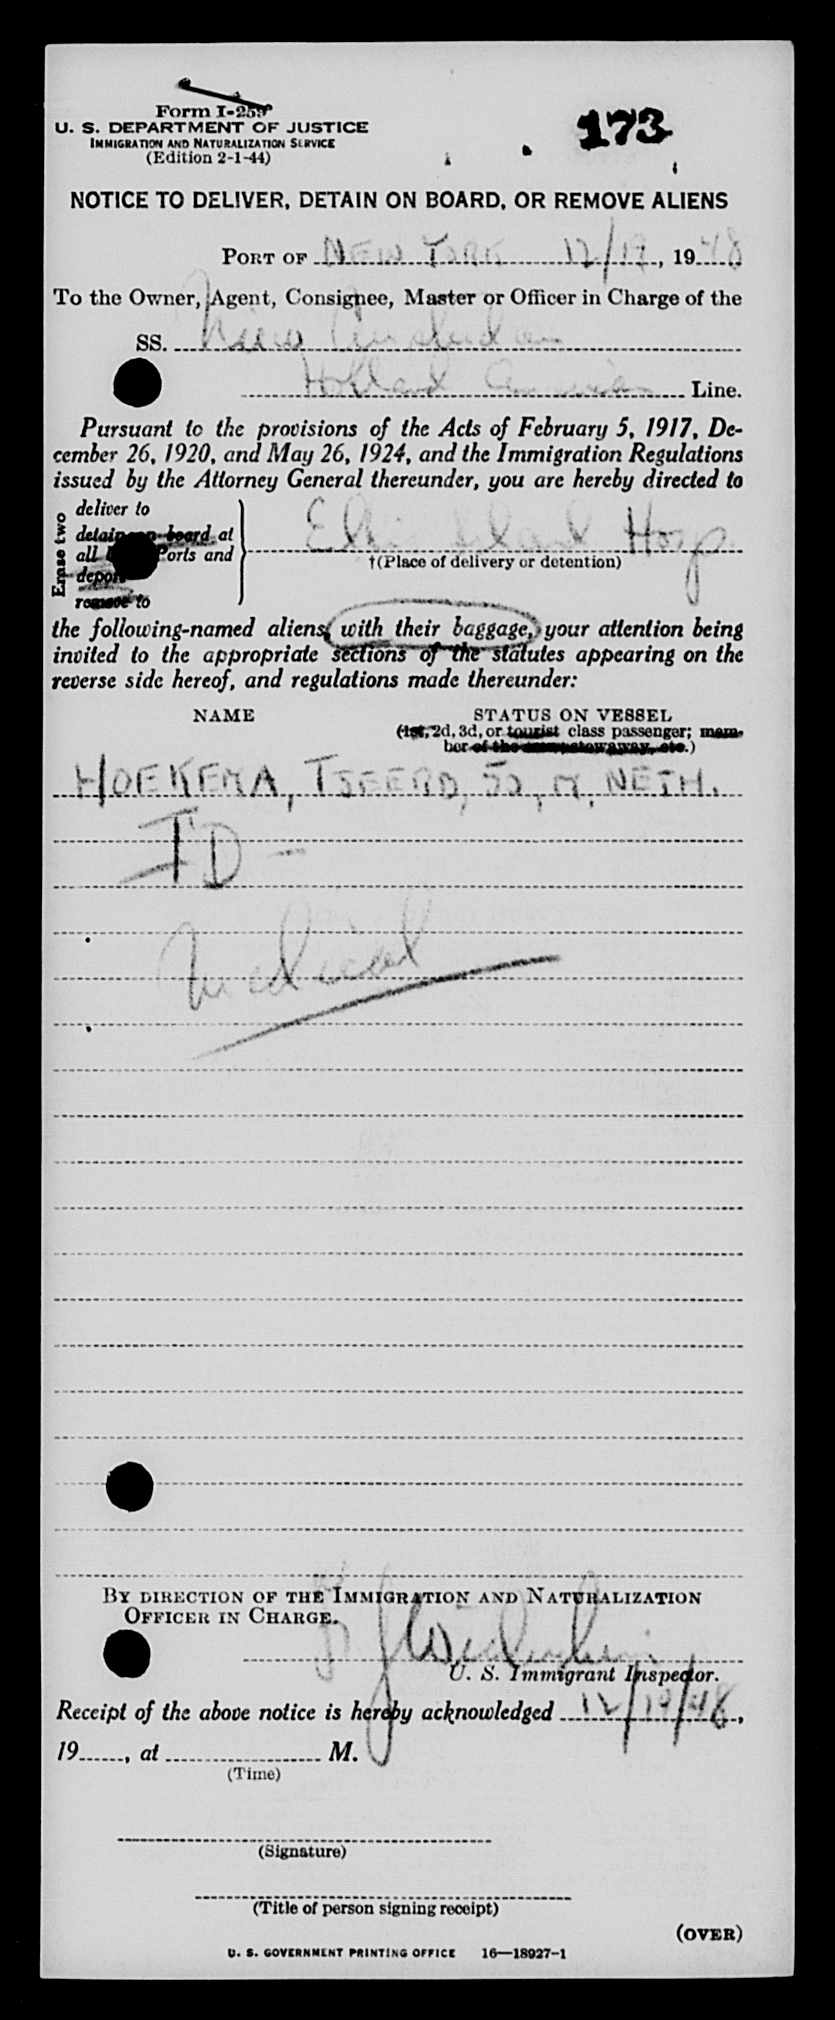 Form I-259
U. S. DEPARTMENT OF JUSTICE
IMMIGRATION AND NATURALIZATION SERVICE
(Edition 2-1-44)
173
NOTICE TO DELIVER, DETAIN ON BOARD, OR REMOVE ALIENS
PORT OF NEW YORK 12/19, 1948
To the Owner, Agent, Consignee, Master or Officer in Charge of the
SS. Nieuw Amsterdam
Holland American Line.
Pursuant to the provisions of the Acts of February 5, 1917, De-
cember 26, 1920, and May 26, 1924, and the Immigration Regulations
issued by the Attorney General thereunder, you are hereby directed to
Erase two
deliver to
detain on board at
all Ports and
deport
remove to
Ellis Island Hosp
†(Place of delivery or detention)
the following-named aliens, with their baggage, your attention being
invited to the appropriate sections of the statutes appearing on the
reverse side hereof, and regulations made thereunder:
NAME STATUS ON VESSEL
(1st, 2d, 3d, or tourist class passenger; mem-
ber of the stowaway, etc.)
HOEKEMA, TJEERD, 50, M, NETH.
TD -
Medical
BY DIRECTION OF THE IMMIGRATION AND NATURALIZATION
OFFICER IN CHARGE.
U. S. Immigrant Inspector.
Receipt of the above notice is hereby acknowledged 12/19/48,
19......, at ...................... M.
(Time)
(Signature)
(Title of person signing receipt)
(OVER)
U. S. GOVERNMENT PRINTING OFFICE 16—18927-1